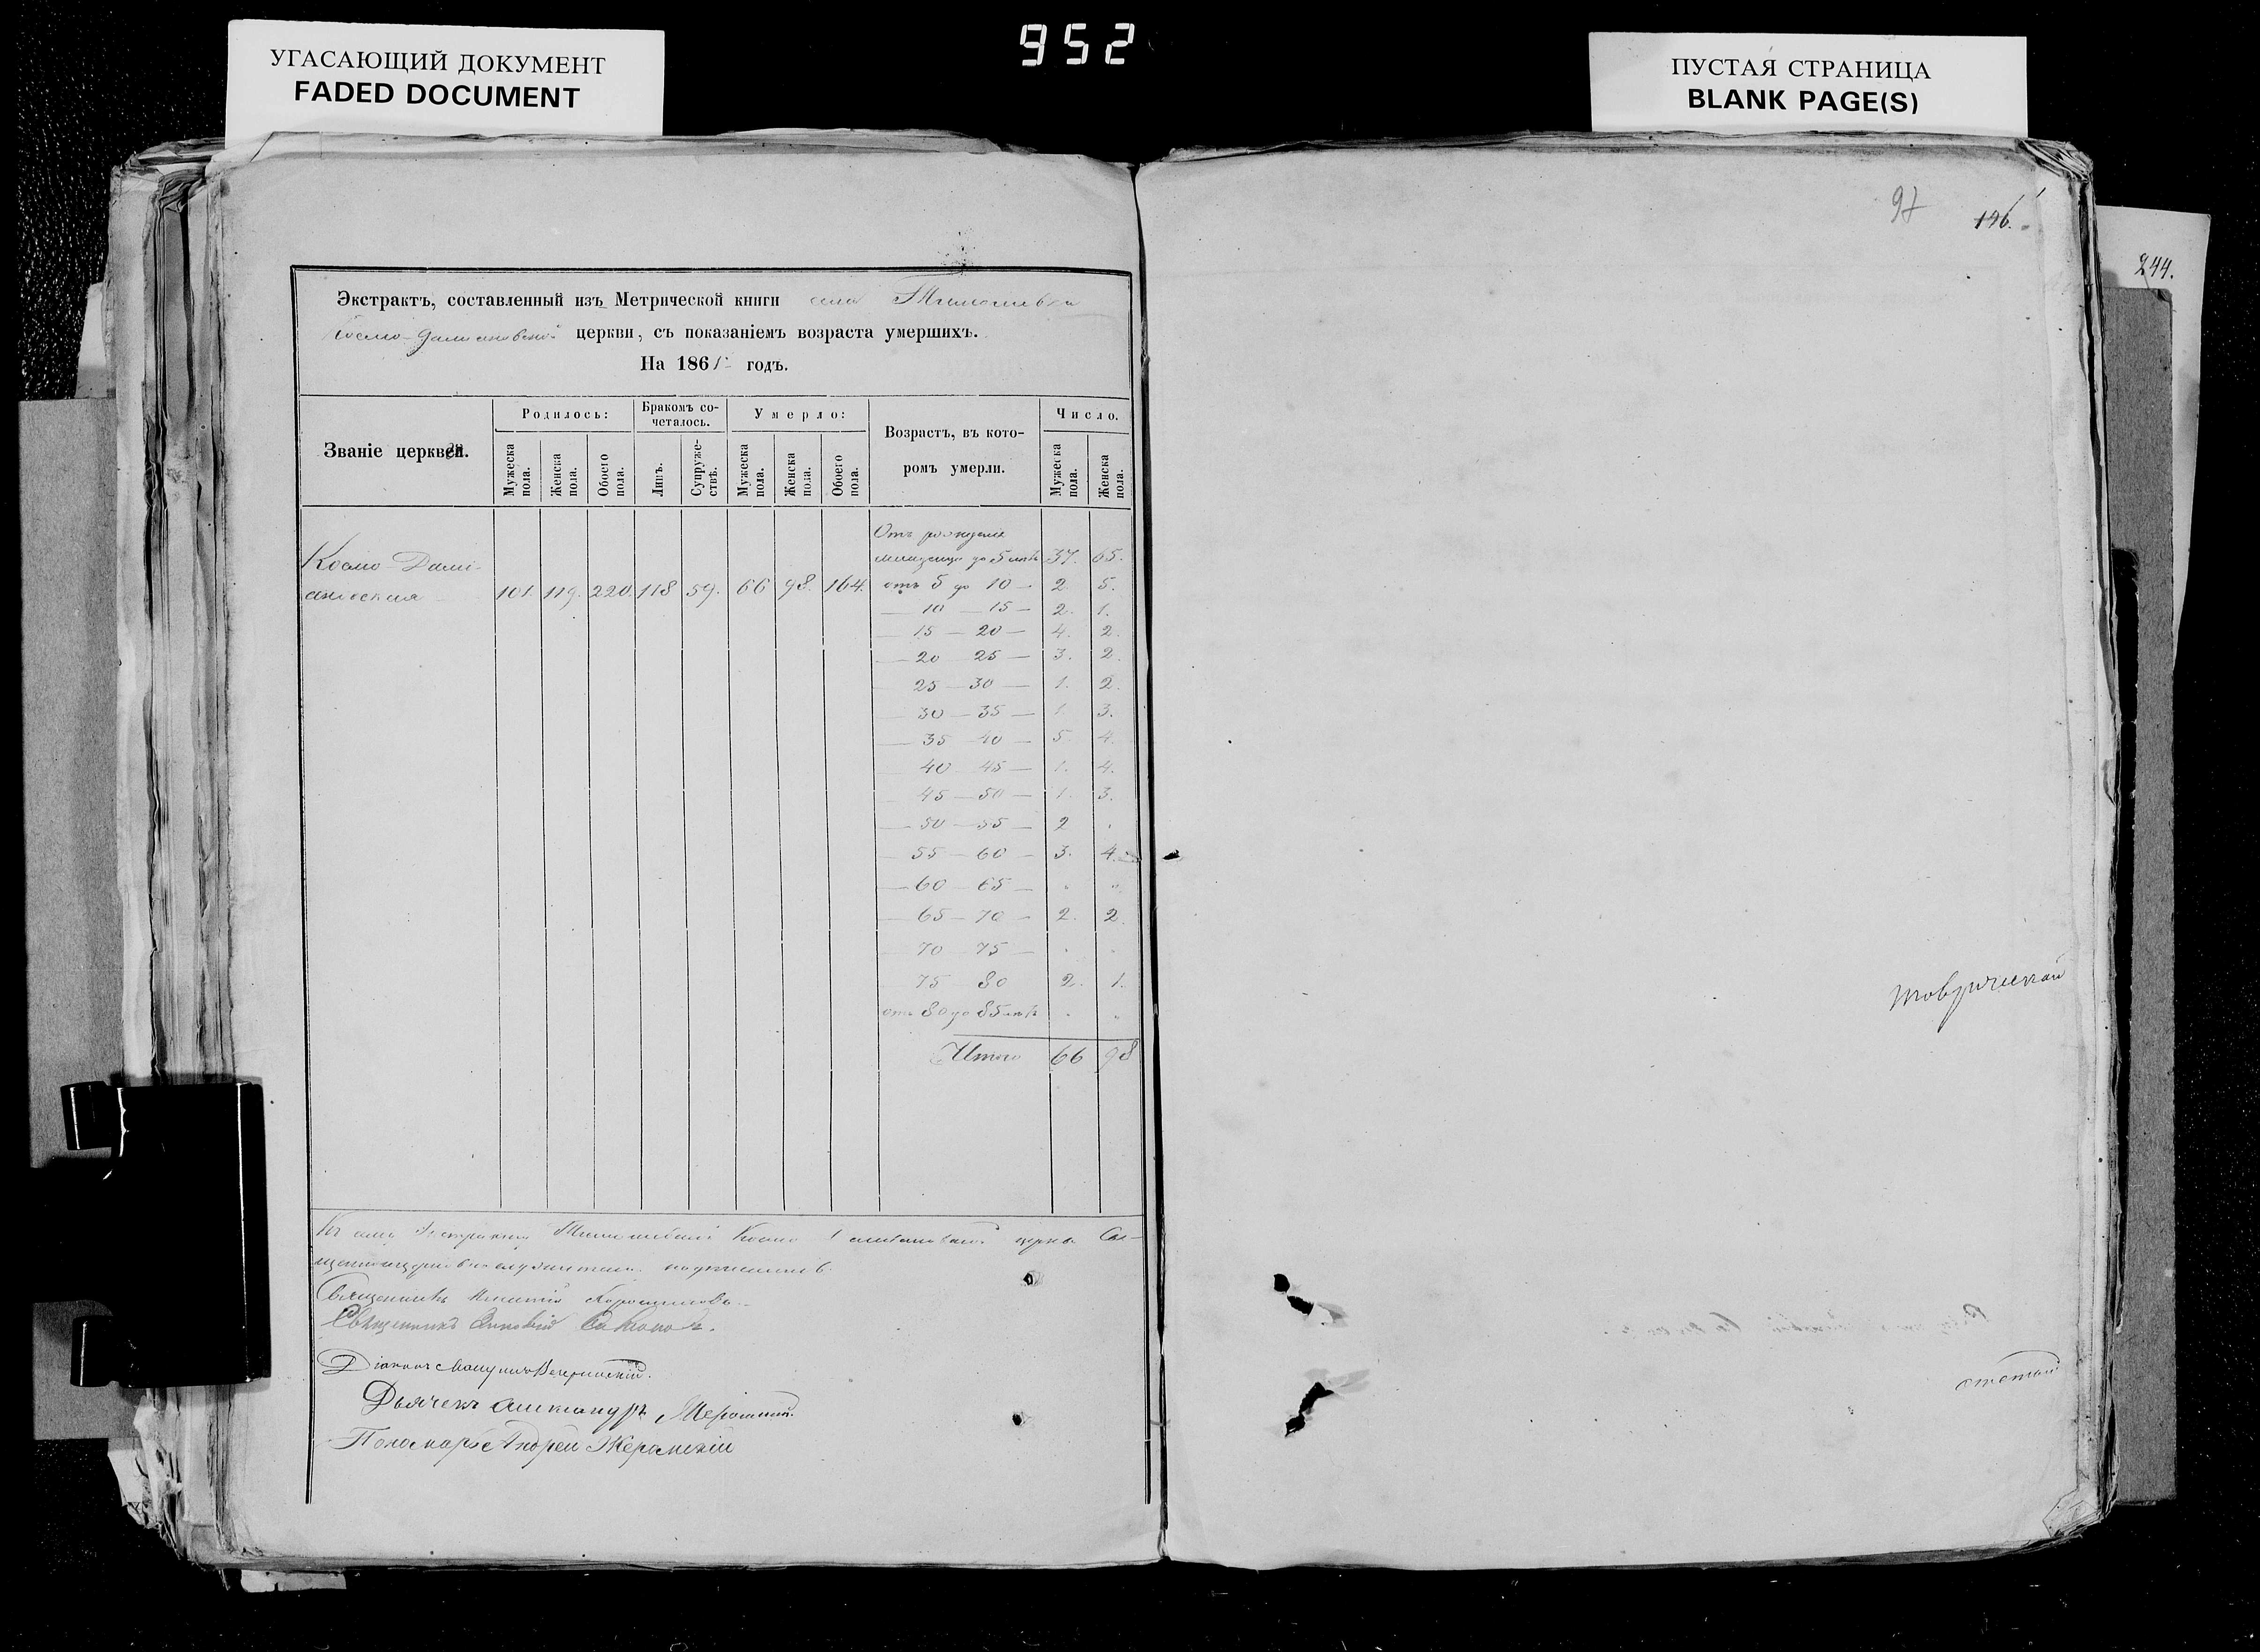 УГАСАЮЩИЙ ДОКУМЕНТ
FADED DOCUMENT
952
ПУСТАЯ СТРАНИЦА
BLANK PAGE(S)
97
196.
244.
Экстрактъ, составленный изъ Метрической книги села Тимошевки
Космо-Дамiановской церкви, съ показаніемъ возраста умершихъ.
На 1861 годъ.
Званіе церквей.
Родилось:
Бракомъ сочеталось.
Умерло:
Возрастъ, въ которомъ умерли.
Число.
Мужеска пола.
Женска пола.
Обоего пола.
Лицъ.
Супружествъ.
Мужеска пола.
Женска пола.
Обоего пола.
Мужеска пола.
Женска пола.
Космо-Дамі-
анов­ская 101. 119. 220. 118 59. 66 98. 164.
Отъ рожденія
младенца до 5 лѣтъ 37. 65.
отъ 5 до 10 — 2. 5.
— 10 — 15 — 2. 1.
— 15 — 20 — 4. 2.
— 20 25 — 3. 2.
25 — 30 — 1. 2.
30 — 35 — 1. 3.
— 35 40 — 5. 4.
40 45 — 1. 4.
45 — 50 — 1. 3.
— 50 — 55 — 2 "
55 — 60 — 3. 4.
— 60 — 65 — " "
65 — 70 — 2. 2.
70 75 — " "
75 80 2. 1.
отъ 80 до 85 лѣтъ " "
Итого 66 98
Къ сему Экстракту Космо церкви Свя-
щенноцерковнослужители
Священникъ
Священникъ Зиновій
Діаконъ
Дьячекъ Александръ
Пономарь Андрей Жеранскій
таврической